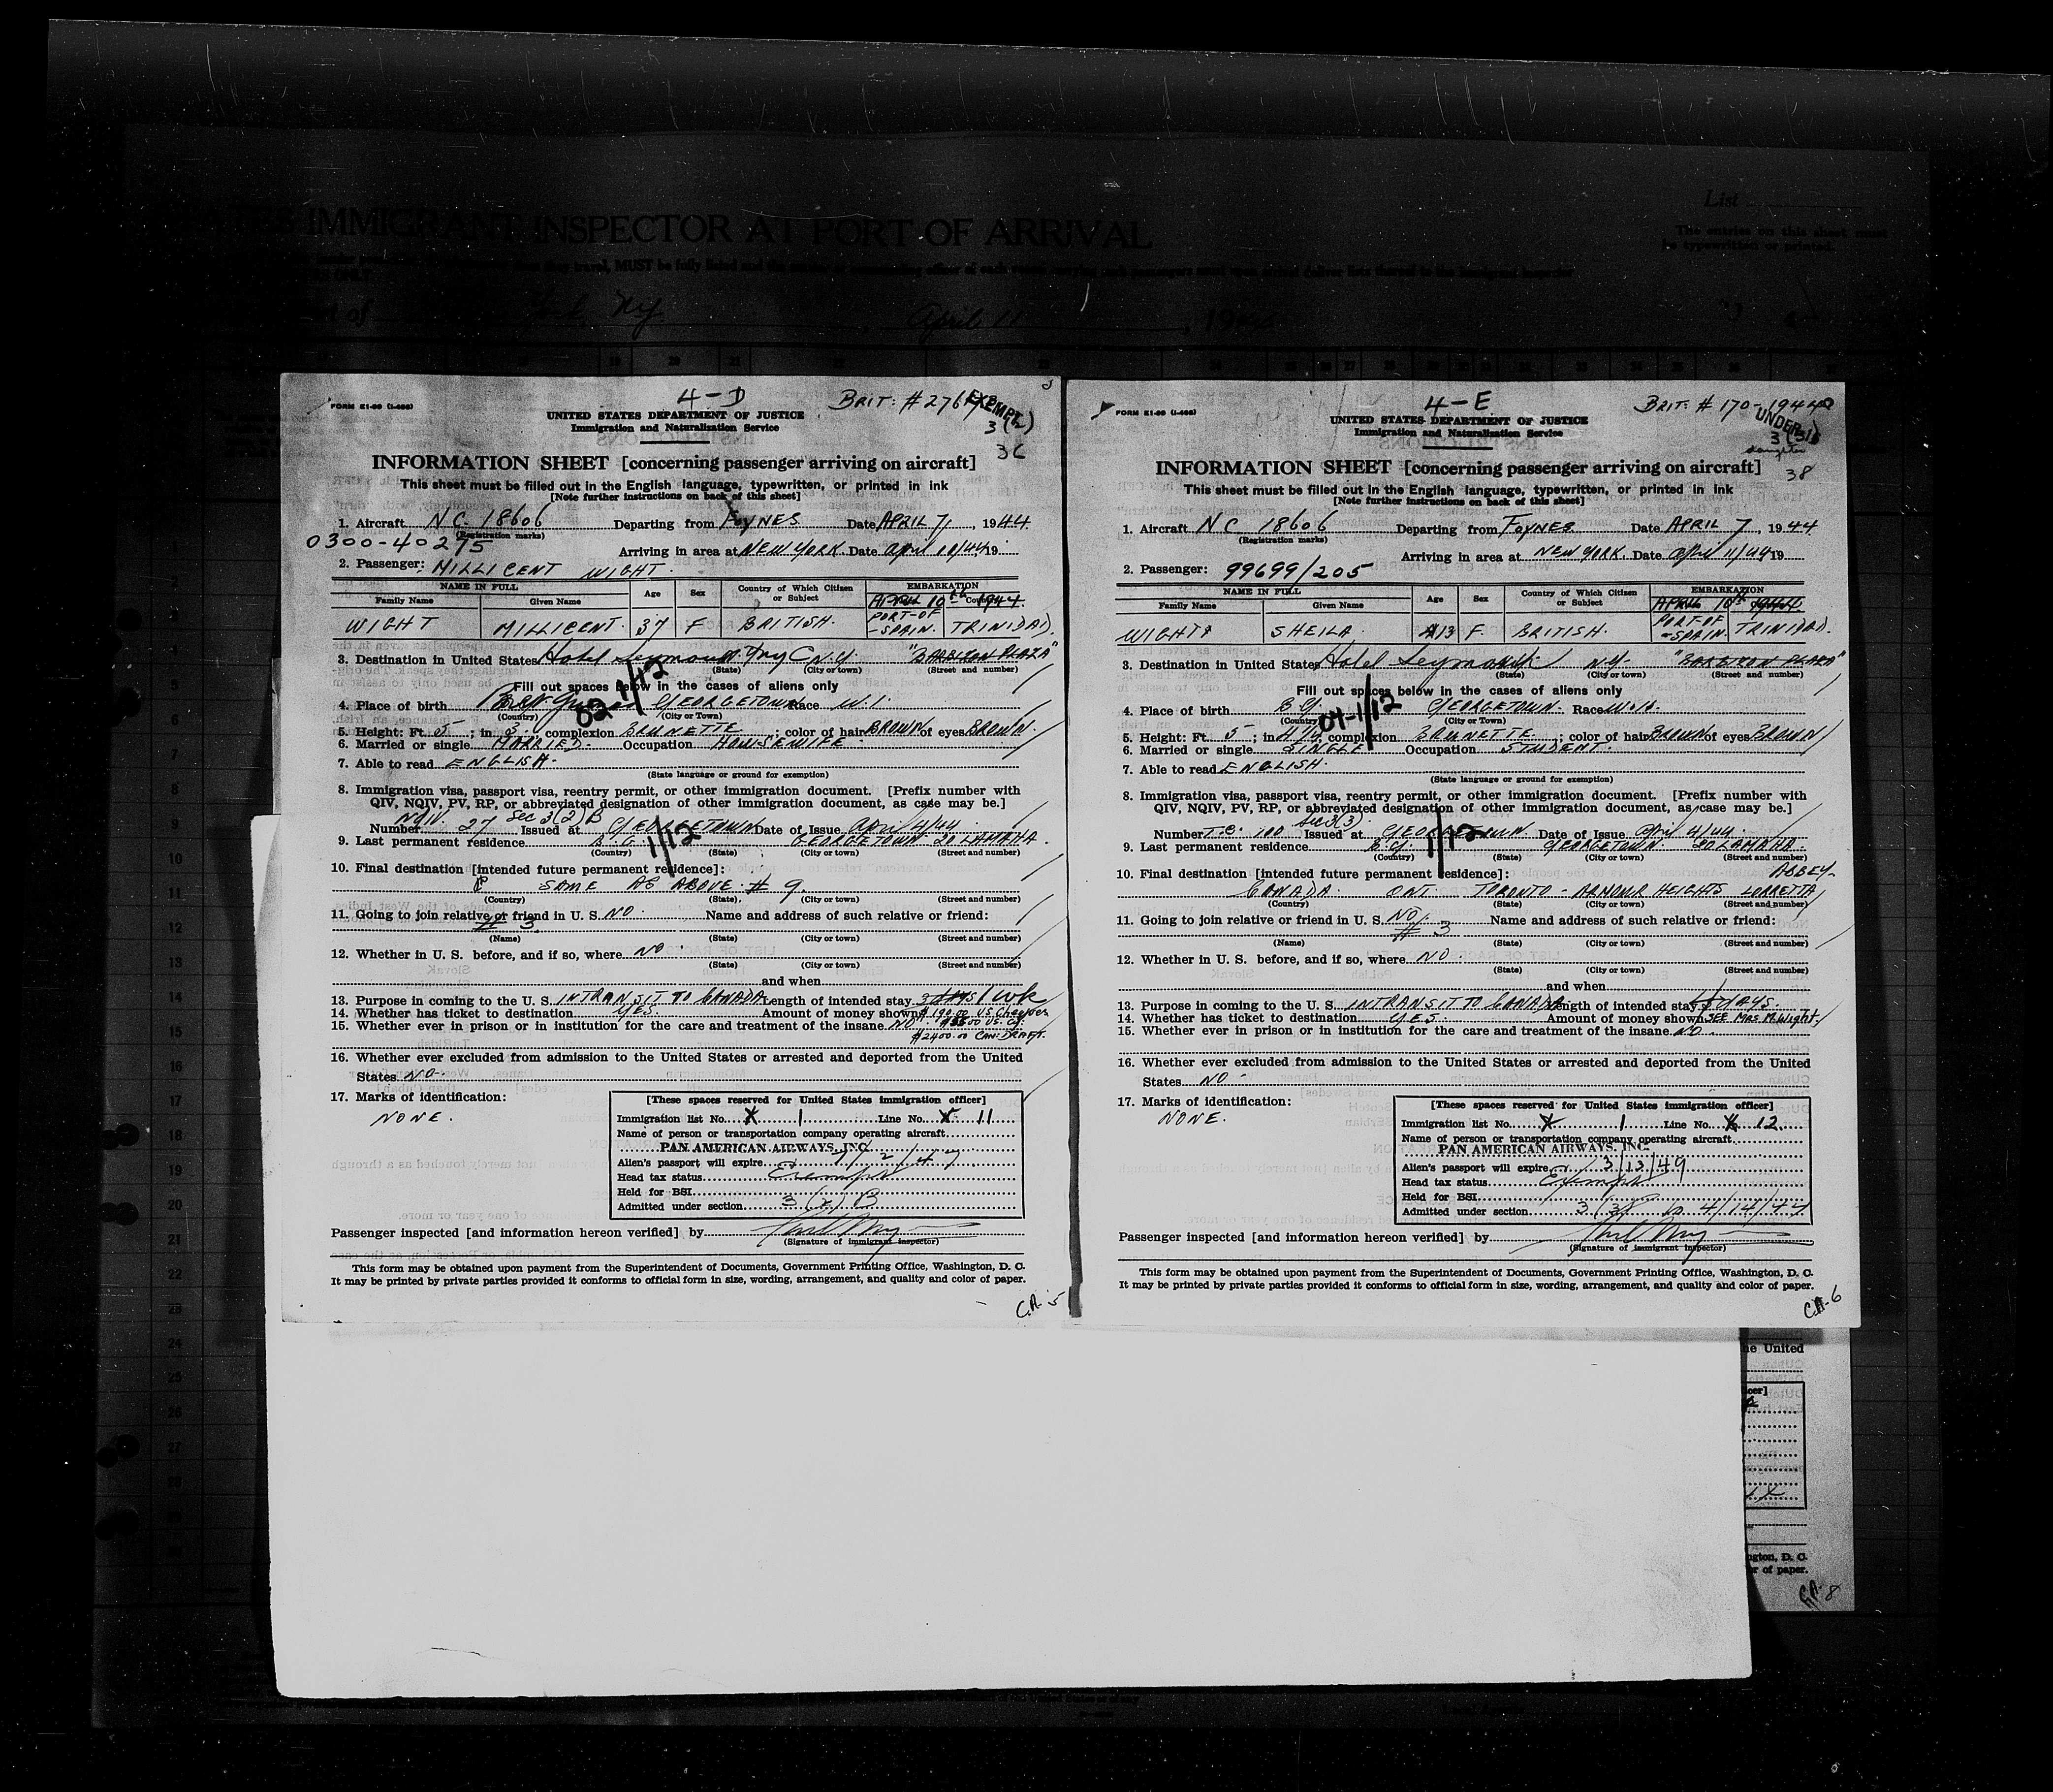 IMMIGRANT INSPECTOR AT PORT OF ARRIVAL
List
The entries on this sheet must
be typewritten or printed.
April 11
4-D
FORM
UNITED STATES DEPARTMENT OF JUSTICE
Immigration and Naturalization Service
EXEMPT
3(2)
36
INFORMATION SHEET [concerning passenger arriving on aircraft]
This sheet must be filled out in the English language, typewritten, or printed in ink
[Note further instructions on back of this sheet]
1. Aircraft NC 18606 Departing from FOYNES Date APRIL 7, 1944
(Registration marks)
0300-40275
Arriving in area at NEW YORK Date April /44 19
2. Passenger: MILLICENT WIGHT
NAME IN FULL Age Sex Country of Which Citizen or Subject EMBARKATION
Family Name Given Name APRIL 10th 1944
WIGHT MILLICENT 37 F BRITISH. PORT-OF-SPAIN. TRINIDAD.
3. Destination in United States Hotel Seymour NYC N.Y. "BARBIZON PLAZA"
(State) (City or town) (Street and number)
Fill out spaces below in the cases of aliens only
4. Place of birth GEORGETOWN Race W.I.
(Country) (City or Town)
5. Height: Ft. 5; in 3; complexion BRUNETTE; color of hair BROWN of eyes BROWN
6. Married or single MARRIED Occupation HOUSEWIFE
7. Able to read ENGLISH.
(State language or ground for exemption)
8. Immigration visa, passport visa, reentry permit, or other immigration document. [Prefix number with
QIV, NQIV, PV, RP, or abbreviated designation of other immigration document, as case may be.]
NQIV. Sec 3(2)B
Number 27 Issued at GEORGETOWN Date of Issue April 4/44
9. Last permanent residence B.G. GEORGETOWN 20 LAMAHA.
(Country) (State) (City or town) (Street and number)
1/12
10. Final destination [intended future permanent residence]:
SAME AS ABOVE # 9.
(Country) (State) (City or town) (Street and number)
11. Going to join relative or friend in U. S. NO. Name and address of such relative or friend:
# 3
(Name) (State) (City or town) (Street and number)
12. Whether in U. S. before, and if so, where NO
(State) (City or town) (Street and number)
and when
13. Purpose in coming to the U. S. INTRANSIT TO CANADA Length of intended stay 3 DAYS 1 wk
14. Whether has ticket to destination YES. Amount of money shown $190.00 US
15. Whether ever in prison or in institution for the care and treatment of the insane NO
$2400.00 CAN. DRAFT.
16. Whether ever excluded from admission to the United States or arrested and deported from the United
States NO
17. Marks of identification:
NONE.
[These spaces reserved for United States immigration officer]
Immigration list No. 1 Line No. 11
Name of person or transportation company operating aircraft
PAN AMERICAN AIRWAYS, INC
Alien's passport will expire 7/2/47
Head tax status Exempt
Held for BSI
Admitted under section 3 (2) B
Passenger inspected [and information hereon verified] by
(Signature of immigrant inspector)
This form may be obtained upon payment from the Superintendent of Documents, Government Printing Office, Washington, D. C.
It may be printed by private parties provided it conforms to official form in size, wording, arrangement, and quality and color of paper.
C.A. 5
4-E
BRIT: # 170-1944
FORM
UNITED STATES DEPARTMENT OF JUSTICE
Immigration and Naturalization Service
UNDER 16
3(3)
daughter
38
INFORMATION SHEET [concerning passenger arriving on aircraft]
This sheet must be filled out in the English language, typewritten, or printed in ink
[Note further instructions on back of this sheet]
1. Aircraft NC 18606 Departing from FOYNES Date APRIL 7 1944
(Registration marks)
Arriving in area at NEW YORK Date April 11/44 19
2. Passenger: 99699/205
NAME IN FULL Age Sex Country of Which Citizen or Subject EMBARKATION
Family Name Given Name APRIL 10th 1944
WIGHT SHEILA 13 F. BRITISH. PORT-OF-SPAIN. TRINIDAD.
3. Destination in United States Hotel Seymour N.Y. "BARBIZON PLAZA"
(State) (City or town) (Street and number)
Fill out spaces below in the cases of aliens only
4. Place of birth B.G. GEORGETOWN. Race
(Country) (City or Town)
5. Height: Ft. 5; in 4 1/2; complexion BRUNETTE; color of hair BROWN of eyes BROWN
6. Married or single SINGLE Occupation STUDENT.
7. Able to read ENGLISH.
(State language or ground for exemption)
8. Immigration visa, passport visa, reentry permit, or other immigration document. [Prefix number with
QIV, NQIV, PV, RP, or abbreviated designation of other immigration document, as case may be.]
Sec 3(3)
Number T.C. 100 Issued at GEORGETOWN Date of Issue April 4/44
9. Last permanent residence B.G. GEORGETOWN 20 LAMAHA.
(Country) (State) (City or town) (Street and number)
1/12
10. Final destination [intended future permanent residence]: ABBEY-
CANADA ONT TORONTO - ARMOUR HEIGHTS LORRETTA
(Country) (State) (City or town) (Street and number)
11. Going to join relative or friend in U. S. NO. Name and address of such relative or friend:
# 3
(Name) (State) (City or town) (Street and number)
12. Whether in U. S. before, and if so, where NO.
(State) (City or town) (Street and number)
and when
13. Purpose in coming to the U. S. INTRANSIT TO CANADA Length of intended stay DAYS.
14. Whether has ticket to destination YES. Amount of money shown SEE MRS M. Wight
15. Whether ever in prison or in institution for the care and treatment of the insane NO.
16. Whether ever excluded from admission to the United States or arrested and deported from the United
States NO
17. Marks of identification:
NONE.
[These spaces reserved for United States immigration officer]
Immigration list No. 1 Line No. 12
Name of person or transportation company operating aircraft
PAN AMERICAN AIRWAYS, INC
Alien's passport will expire 3/13/49
Head tax status Exempt
Held for BSI
Admitted under section 3 (3) to 4/14/44
Passenger inspected [and information hereon verified] by
(Signature of immigrant inspector)
This form may be obtained upon payment from the Superintendent of Documents, Government Printing Office, Washington, D. C.
It may be printed by private parties provided it conforms to official form in size, wording, arrangement, and quality and color of paper.
C.A. 6
he United
cer]
ngton, D. C.
or of paper.
C.A. 8